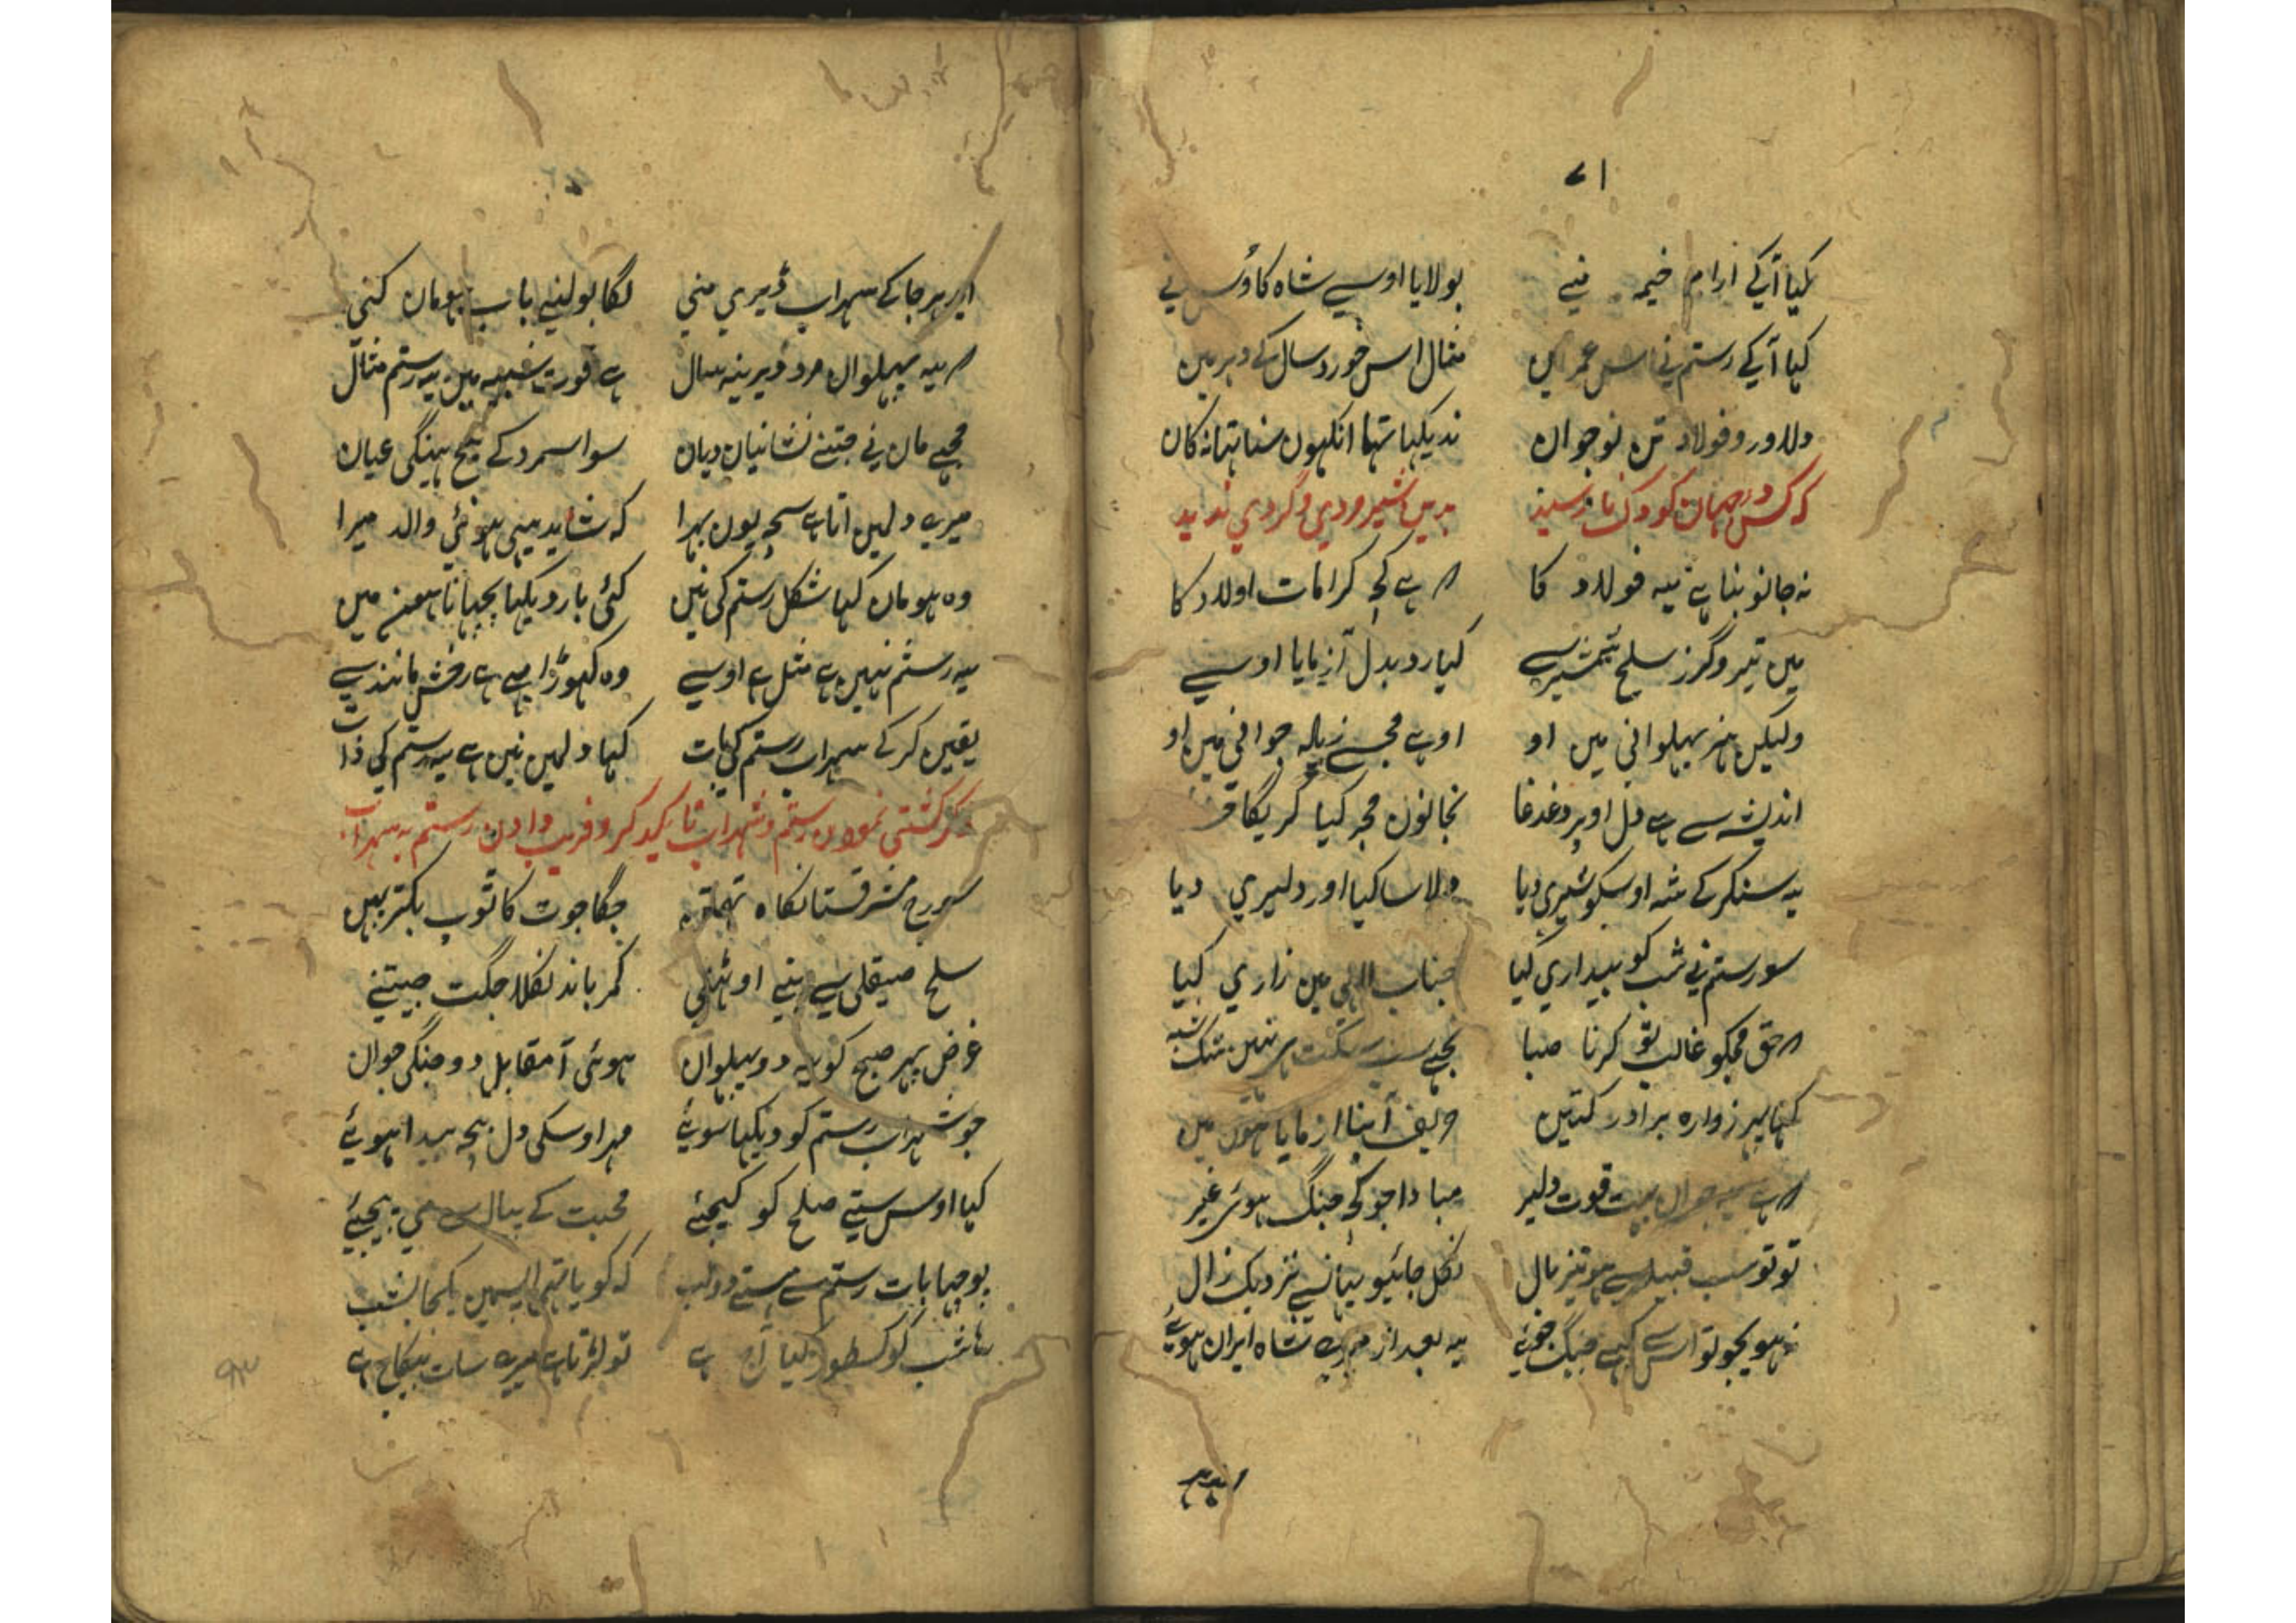 ۷۱
کیا آکے ارام خیمہ منے بولایا اوسے شاہ کاؤس نے
کہا آکے رستم نے اس عمر میں مثال اس خورد سال کے دہر میں
دلاور و فولاد تن نوجوان ندیکہا تہا انکہون سنا تہا نہ کان
کہ کس در جہان کودک نارسید بدین شیر مردی و گردی ندید
نہ جانو بنا ہے یہ فولاد کا ہے کچہ کرامات اولاد کا
میں تیر و گرز سلح شمشیر سے کیا رد بدل آزمایا اوسے
ولیکن ہنر پہلوانی میں او اوہے مجسے زیادہ جوانی میں او
اندیشہ سے ہے دل اوپر دغدغا نجانون مجہ کیا کریگا
یہ سنکر کے شہ اوسکو شیری دیا دلاسا کیا اور دلیری دیا
سو رستم نے شب کو بیداری کیا جناب الہی میں زاری کیا
حق مجکو غالب تو کرنا صبا تجہے نہیں شک
کہا پہر زوارہ برادر کتین حریف آپنا ازمایا ہون میں
ہے یہ جوان بہت قوت دلیر مبادا جو کچہ جنگ ہوئی غیر
تو تو سب قبیلے سے ہو تیز بال نکل جائیو یہانسے نزدیک زال
نہ ہویجو تو اس کے جنگ جوئے یہ بعد از میرے شاہ ایران ہوئے
ایدہر جا کے سہراب ڈیری منی لگا بولنے باب ہومان کنی
یہ پہلوان مرد دیرینہ سال ہے قوت میں یہ رستم مثال
مجہے مان نے جتنے نشانیان دیان سو اسمرد کے بیچ ہینگی عیان
میرے دلمین اتا ہے سچہ یون بہرا کہ شاید یہی ہوئی والد میرا
وہ ہومان کہا شکل رستم کی نیں کئی بار دیکہا پچہانا ہون میں
یہ رستم نہین ہے مثل ہے اوسے وہ کہوڑا بہی ہے رخش مانند سے
یقین کر کے سہراب رستم کی بات کہا دلمین نین ہے یہ رستم کی ذات
ذکر کشتی نمودن رستم و سہراب با یکدیگر و فریب دادن رستم بہ سہراب
سورج مشرقستان کا جگا جوت کا ٹوپ بکتر پہن
سلح صیقلی سے اپنے اوٹنے کمر باند نکلا جگت جیتنے
غرض پہر صبح کو یہ دو پہلوان ہوئی آ مقابل دو جنگی جوان
جو سہراب رستم کو دیکہا سوئے مہر اوسکی دل بیچہ پیدا ہوئے
کیا اوس ستے صلح کو کیجئے محبت کے پیالے مے پیجئے
پوچہا بات رستم سے ہستے دو لب کہ گویا تہے اپسمین یکجا بشب
رہا شب کو کسطور کیا آج ہے تو لڑتا ہے میرے سات